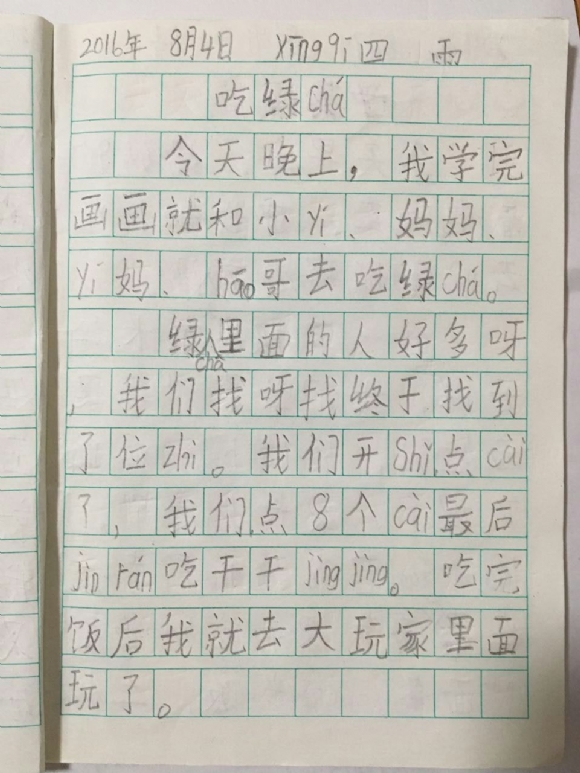 2016年 8月4日 xīng qī 四 雨
吃绿chá
今天晚上，我学完
画画就和小yí、妈妈、
yí妈、hāo哥去吃绿chá。
绿chá里面的人好多呀
，我们找呀找终于找到
了位zhi。我们开Shǐ点cài
了，我们点8个cài最后
jìn rán吃干干jìng jìng。吃完
饭后我就去大玩家里面
玩了。